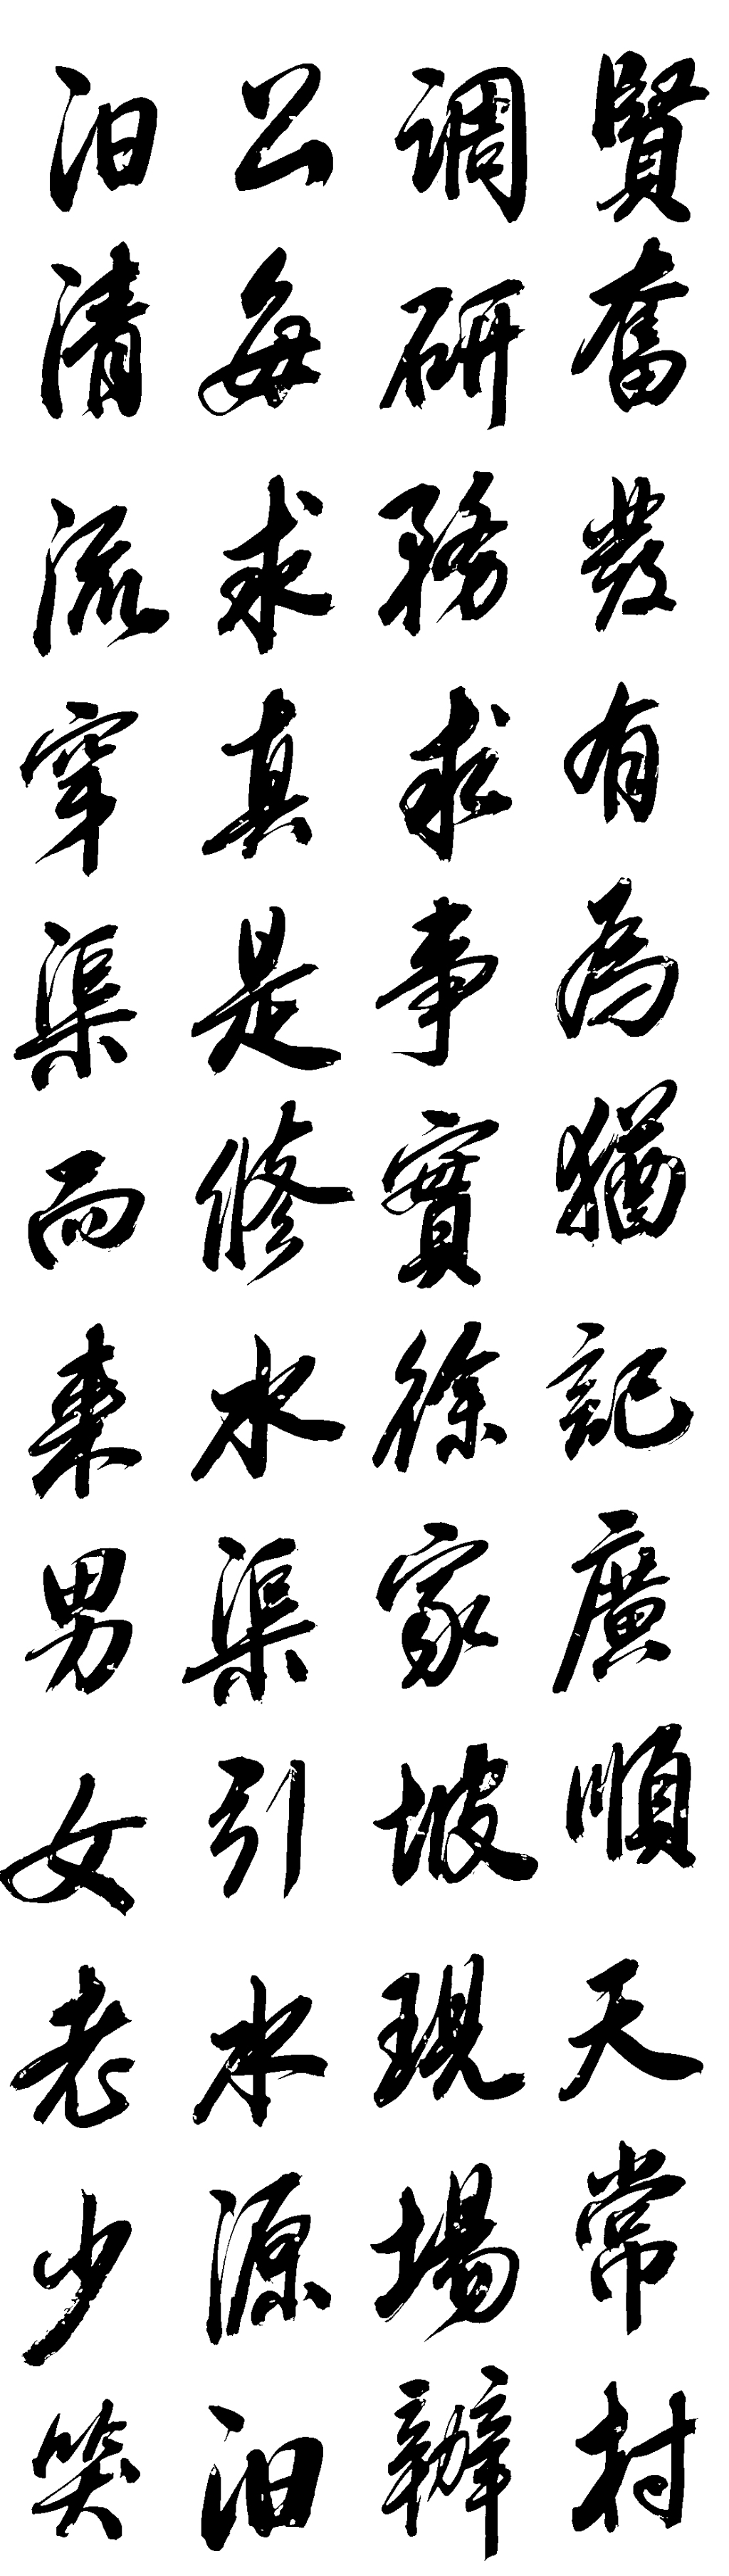 賢奮發有為猶記廣順天常村
调研務求事實徐家坡現場辦
公每求真是修水渠引水源汨
汨清流穿渠而來男女老少笑